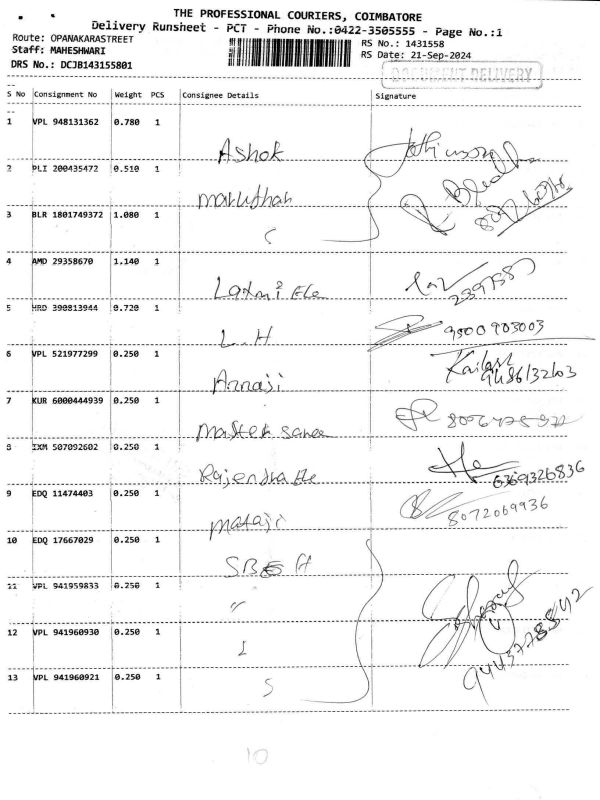 THE PROFESSIONAL COURIERS, COIMBATORE
Delivery Runsheet - PCT - Phone No.:0422-3505555 - Page No.:1
Route: OPANAKARASTREET
RS No.: 1431558
Staff: MAHESHWARI
RS Date: 21-Sep-2024
DRS No.: DCJB143155801
DOCUMENT DELIVERY
S No Consignment No Weight PCS Consignee Details Signature
1 VPL 948131362 0.780 1 Ashok
2 PLI 200435472 0.510 1 Maruthar
3 BLR 1801749372 1.080 1
4 AMD 29358670 1.140 1 Laxmi Ele
5 HRD 390813944 0.720 1 L.H 9500903003
6 VPL 521977299 0.250 1 Annaji Kailash
7 KUR 6000444939 0.250 1
8 IXM 507092602 0.250 1 Rajendra Ele 6369326836
9 EDQ 11474403 0.250 1 Mataji 8072069936
10 EDQ 17667029 0.250 1
11 VPL 941959833 0.250 1 "
12 VPL 941960930 0.250 1
13 VPL 941960921 0.250 1
10